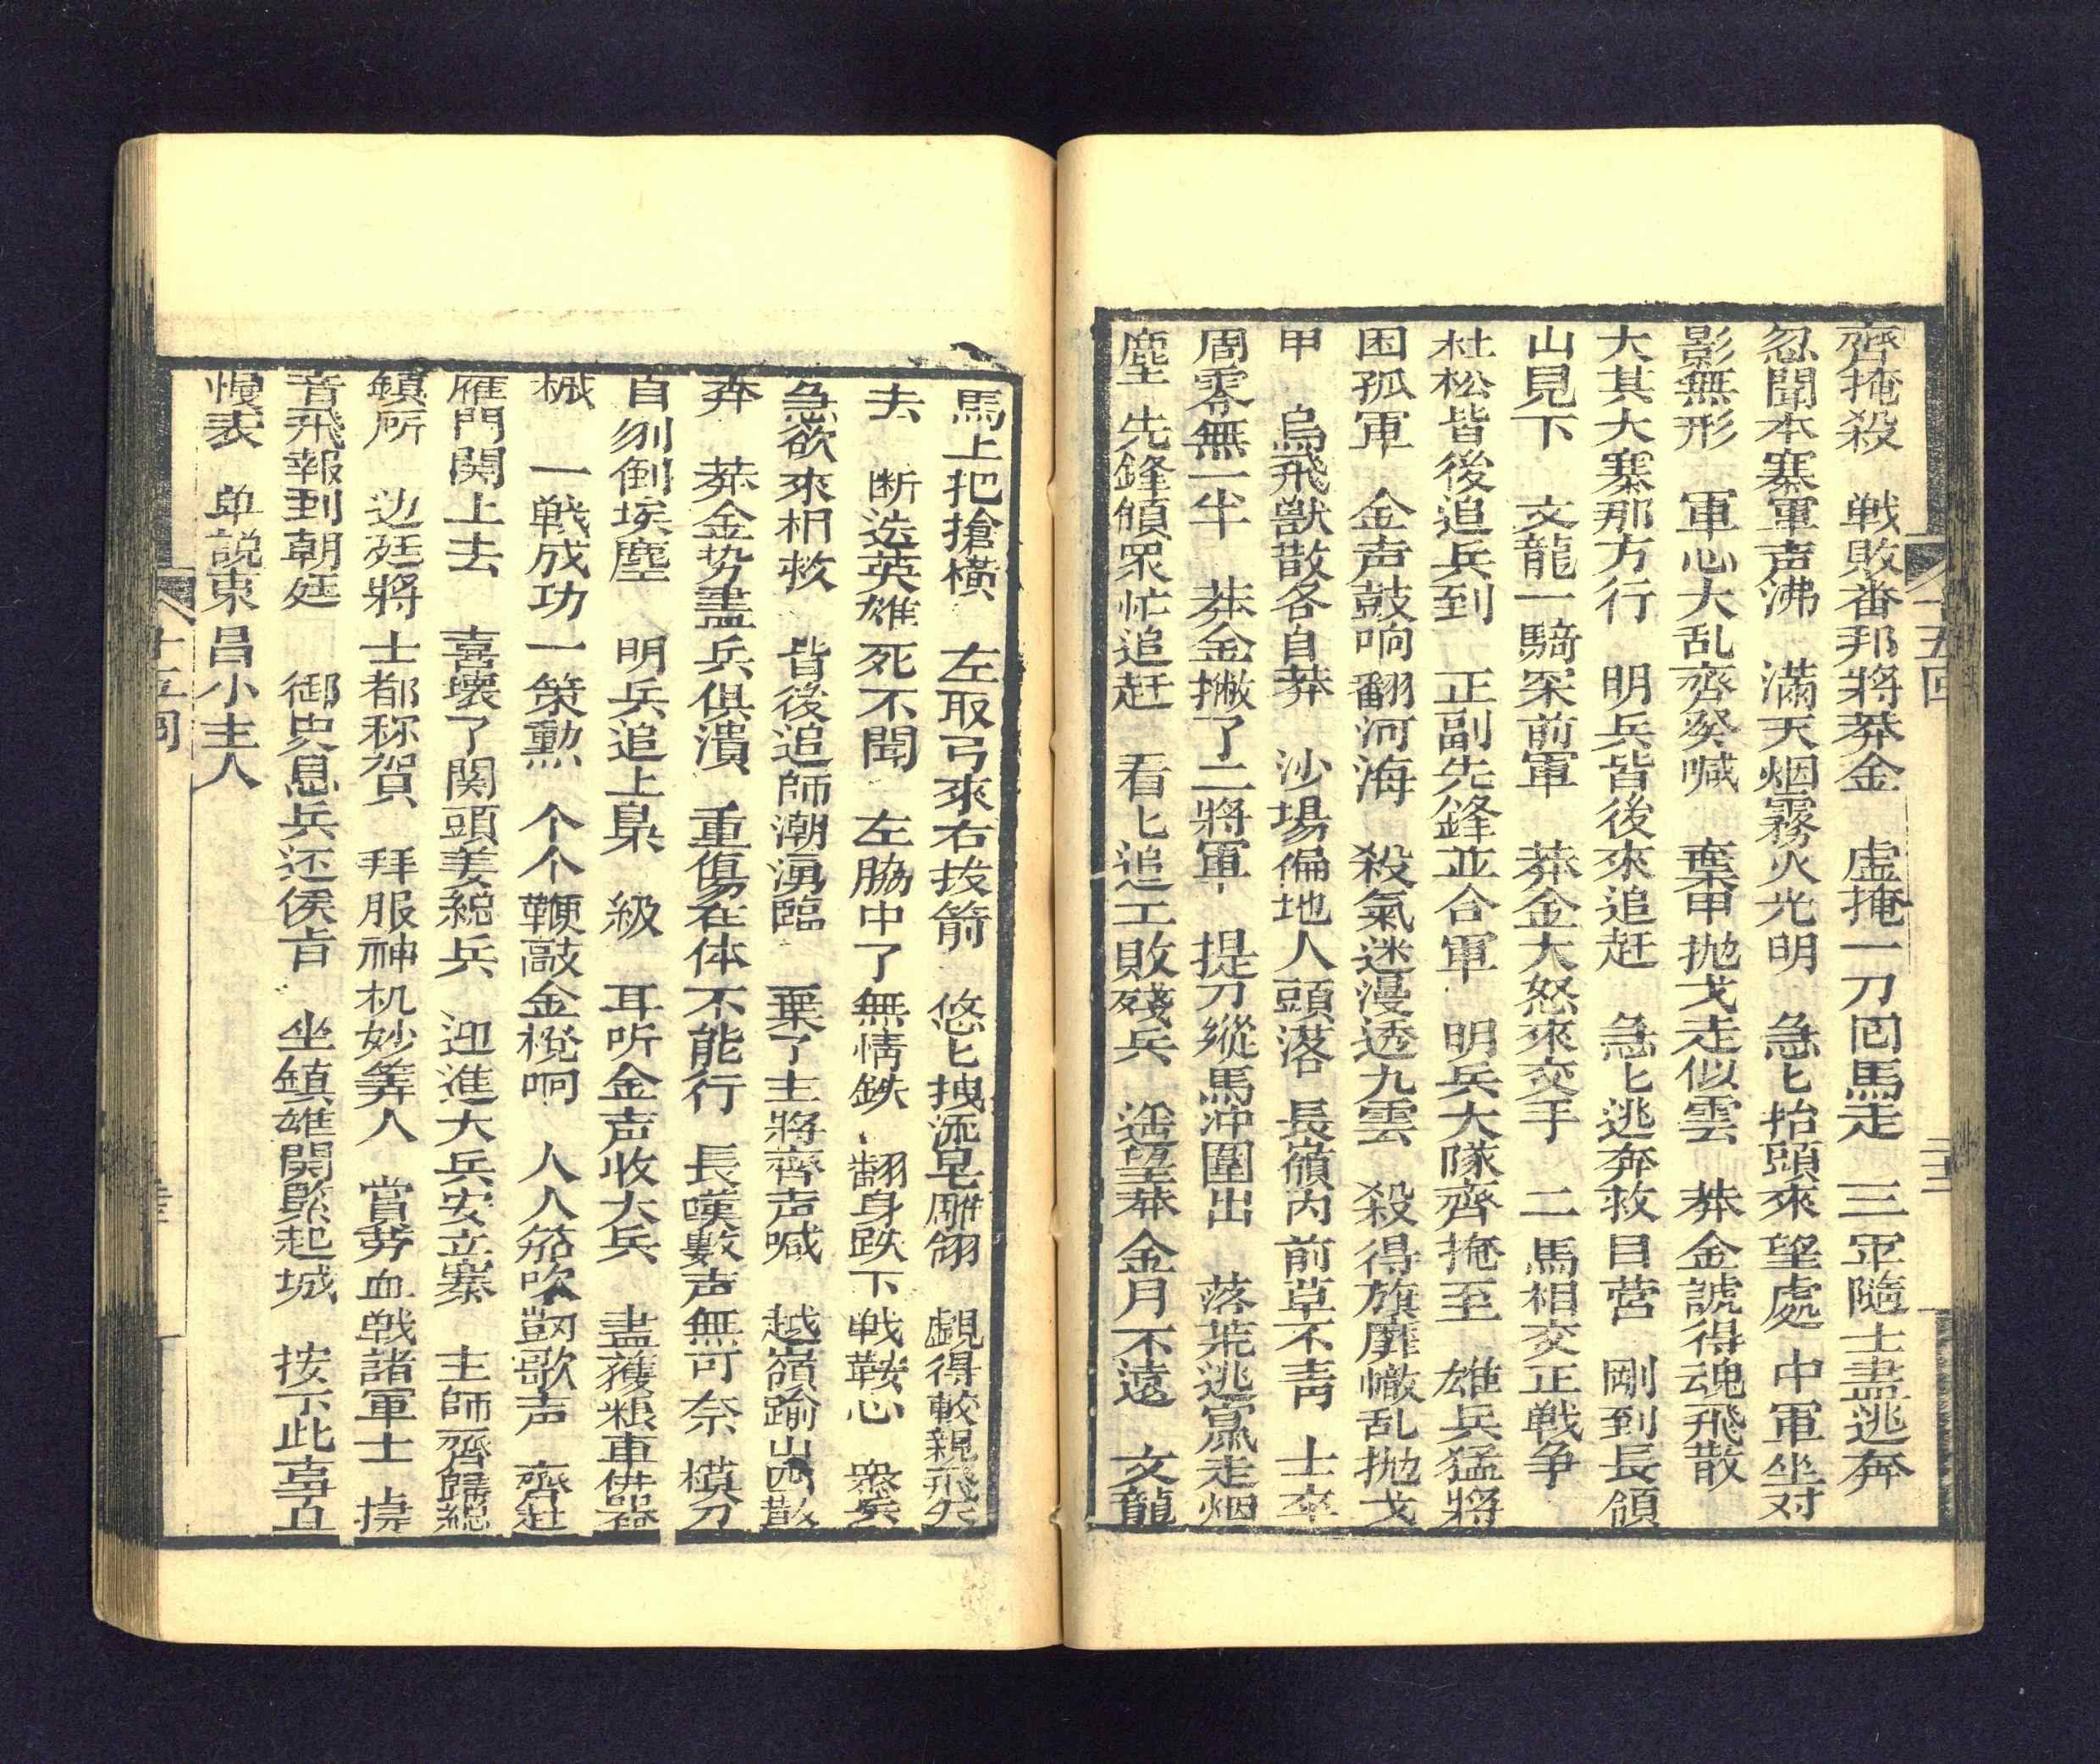 齊掩殺　戦敗番邦將莽金　虚掩一刀回馬走　三軍隨士盡逃奔
忽聞本寨軍声沸　滿天烟霧火光明　急匕抬頭來望處　中軍坐对
影無形　軍心大乱齊發喊　棄甲抛戈走似雲　莽金諕得魂飛散
大其大寨那方行　明兵背後來追赶　急匕逃奔救目营　剛到長領
山見下　文龍一騎罙前軍　莽金大怒來交手　二馬相交正戦争
杜松背後追兵到　正副先鋒並合軍　明兵大隊齊掩至　雄兵猛將
困孤軍　金声鼓响翻河海　殺氣迷漫透九雲　殺得旗靡幟乱抛戈
甲　烏飛獸散各自莽　沙場偏地人頭落　長嶺內前草不青　士卒
周零無一半　莽金撇了二將軍　提刀縱馬沖圍出　落荒逃窟走烟
塵　先鋒領眾忙追赶　看匕追工敗殘兵　遥望莽金月不遠　文龍
十五回
馬上把搶橫　左取弓來右拔箭　悠匕拽流星雕翎　觑得較親飛矢
去　断送英雄死不聞　左脇中了無情鉄　翻身跌下戦鞍心　衆兵
急欲來相救　背後追師潮湧臨　棄了主將齊声喊　越嶺踰山四散
奔　莽金势盡兵俱潰　重傷在体不能行　長嘆數声無可奈　横刀
自刎倒埃塵　明兵追上梟　級　耳听金声收大兵　盡獲粮車併器
械　一戦成功一策勲　个个鞭敲金橙响　人人笳吹凱歌声　齊赴
雁門関上去　喜壊了関頭姜総兵　迎進大兵安立寨　主師齊歸総
鎮所　边廷將士都称賀　拜服神机妙筭人　賞劳血戦諸軍士　捷
音飛報到朝廷　御史息兵还侯旨　坐鎮雄関㬎起城　按下此事丘
慢表　单説東昌小主人
十五回